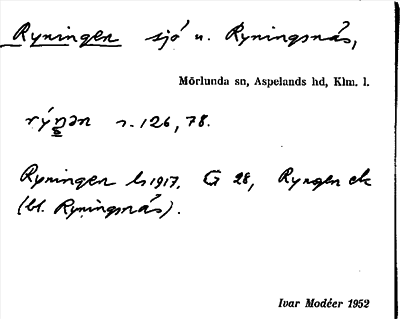 Ryningen sjö u. Ryningsnäs,
Mörlunda sn, Aspelands hd, Klm. l.
rýŋən s. 126, 78.
Ryningen ls 1917. G 28, Ryngen ek
(bl. Ryningsnäs).
Ivar Modéer 1952